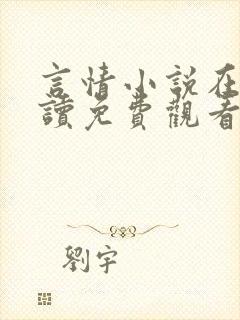 言情小說在
讀免費觀看
劉宇